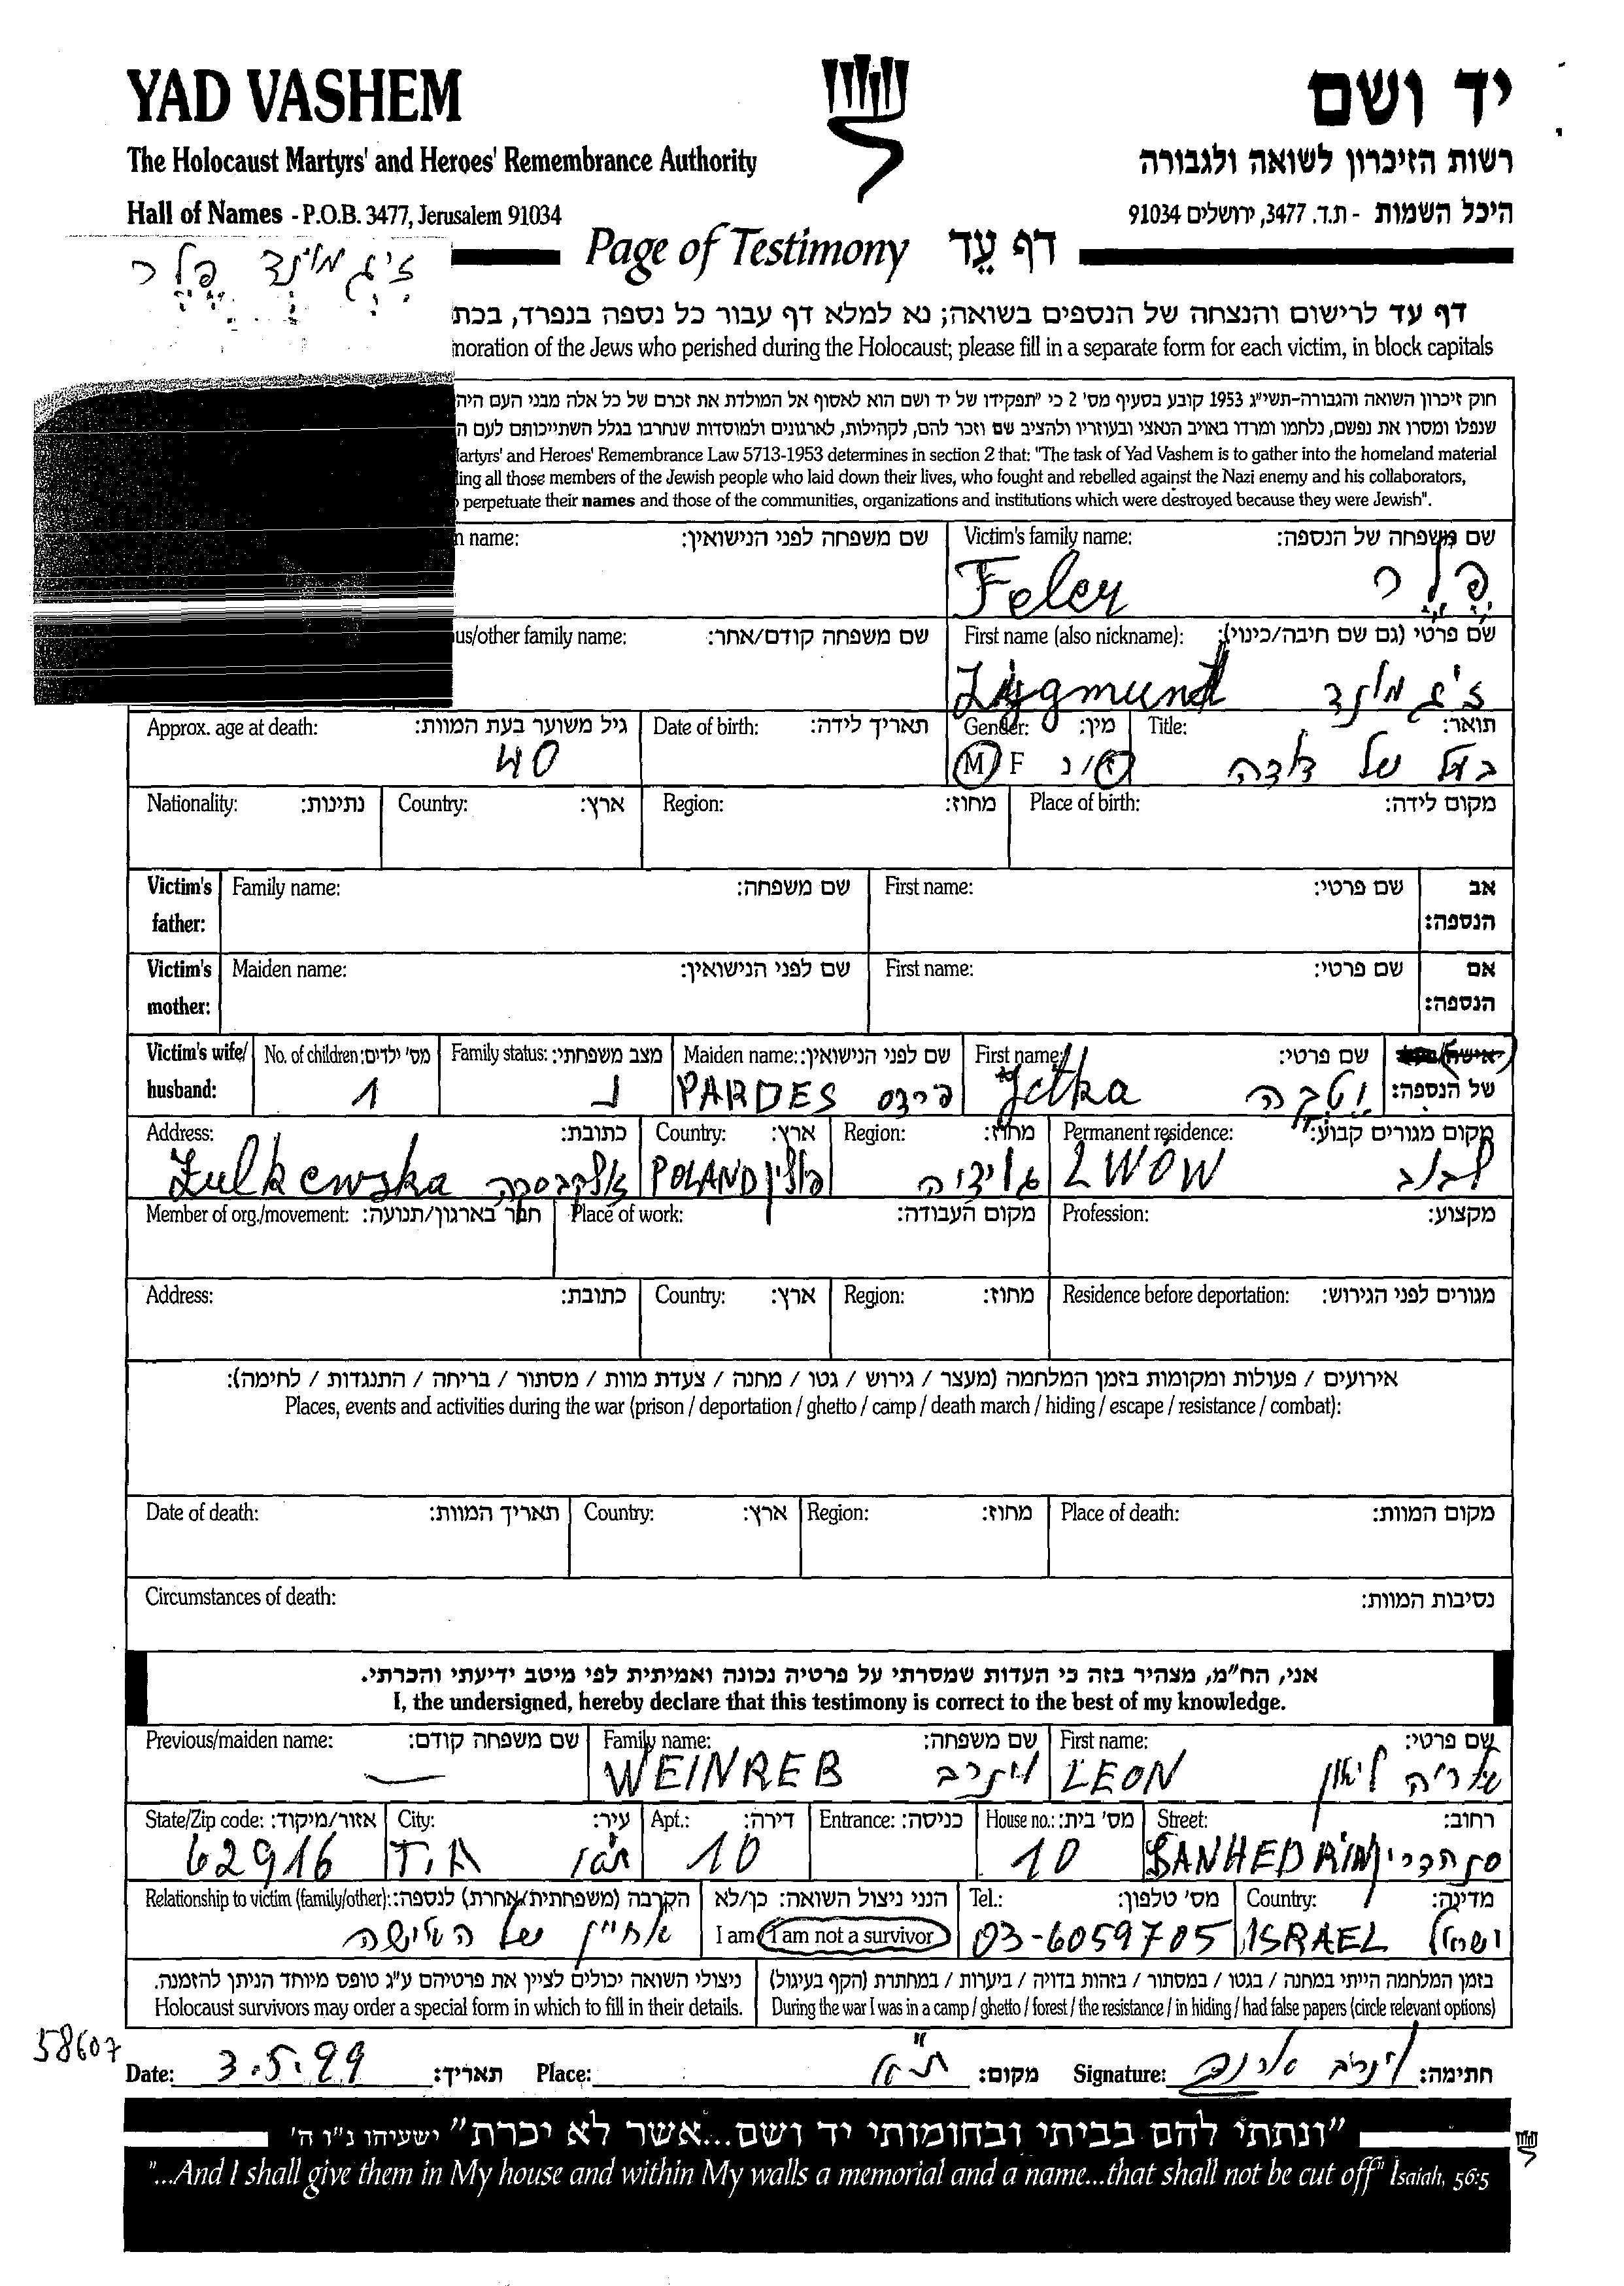 YAD VASHEM
יד ושם
The Holocaust Martyrs' and Heroes' Remembrance Authority
רשות הזיכרון לשואה ולגבורה
Hall of Names - P.O.B. 3477, Jerusalem 91034
היכל השמות - ת.ד. 3477, ירושלים 91034
Page of Testimony דף עֵד
זיגמונד פלר
דף עד לרישום והנצחה של הנספים בשואה; נא למלא דף עבור כל נספה בנפרד, בכת
moration of the Jews who perished during the Holocaust; please fill in a separate form for each victim, in block capitals
חוק זיכרון השואה והגבורה-תשי"ג 1953 קובע בסעיף מס' 2 כי "תפקידו של יד ושם הוא לאסוף אל המולדת את זכרם של כל אלה מבני העם היה
שנפלו ומסרו את נפשם, נלחמו ומרדו באויב הנאצי ובעוזריו ולהציב שם וזכר להם, לקהילות, לארגונים ולמוסדות שנחרבו בגלל השתייכותם לעם ה
Martyrs' and Heroes' Remembrance Law 5713-1953 determines in section 2 that: "The task of Yad Vashem is to gather into the homeland material
ing all those members of the Jewish people who laid down their lives, who fought and rebelled against the Nazi enemy and his collaborators,
perpetuate their names and those of the communities, organizations and institutions which were destroyed because they were Jewish".
n name: שם משפחה לפני הנישואין: Victim's family name: שם משפחה של הנספה:
Feler פלר
us/other family name: שם משפחה קודם/אחר: First name (also nickname): שם פרטי (גם שם חיבה/כינוי):
Zygmund זיגמונד
Approx. age at death: גיל משוער בעת המוות: Date of birth: תאריך לידה: Gender: מין: Title: תואר:
40 M F ז/נ בעל של דודה
Nationality: נתינות: Country: ארץ: Region: מחוז: Place of birth: מקום לידה:
Victim's father: Family name: שם משפחה: First name: שם פרטי: אב הנספה:
Victim's mother: Maiden name: שם לפני הנישואין: First name: שם פרטי: אם הנספה:
Victim's wife/ husband: No. of children: מס' ילדים: Family status: מצב משפחתי: Maiden name: שם לפני הנישואין: First name: שם פרטי: של הנספה:
1 נ PARDES פרדס Jetka יטקה
Address: כתובת: Country: ארץ: Region: מחוז: Permanent residence: מקום מגורים קבוע:
Zulkewska POLAND פולין גליציה LWÓW לבוב
Member of org./movement: חבר בארגון/תנועה: Place of work: מקום העבודה: Profession: מקצוע:
Address: כתובת: Country: ארץ: Region: מחוז: Residence before deportation: מגורים לפני הגירוש:
אירועים / פעולות ומקומות בזמן המלחמה (מעצר / גירוש / גטו / מחנה / צעדת מוות / מסתור / בריחה / התנגדות / לחימה):
Places, events and activities during the war (prison / deportation / ghetto / camp / death march / hiding / escape / resistance / combat):
Date of death: תאריך המוות: Country: ארץ: Region: מחוז: Place of death: מקום המוות:
Circumstances of death: נסיבות המוות:
אני, הח"מ, מצהיר בזה כי העדות שמסרתי על פרטיה נכונה ואמיתית לפי מיטב ידיעתי והכרתי.
I, the undersigned, hereby declare that this testimony is correct to the best of my knowledge.
Previous/maiden name: שם משפחה קודם: Family name: שם משפחה: First name: שם פרטי:
WEINREB וינרב LEON אריה ליאון
State/Zip code: אזור/מיקוד: City: עיר: Apt.: דירה: Entrance: כניסה: House no.: מס' בית: Street: רחוב:
62916 T.A 10 10 SANHEDRIN סנהדרין
Relationship to victim (family/other): הקרבה (משפחתית/אחרת) לנספה: הנני ניצול השואה: כן/לא Tel.: מס' טלפון: Country: מדינה:
אחיין של האישה I am I am not a survivor 03-6059705 ISRAEL ישראל
בזמן המלחמה הייתי במחנה / בגטו / במסתור / בזהות בדויה / ביערות / במחתרת (הקף בעיגול) ניצולי השואה יכולים לציין את פרטיהם ע"ג טופס מיוחד הניתן להזמנה.
Holocaust survivors may order a special form in which to fill in their details. During the war I was in a camp / ghetto / forest / the resistance / in hiding / had false papers (circle relevant options)
58607
Date: 3.5.99 תאריך: Place: ת"א מקום: Signature: חתימה:
"ונתתי להם בביתי ובחומותי יד ושם...אשר לא יכרת" ישעיהו נ"ו ה'
"...And I shall give them in My house and within My walls a memorial and a name...that shall not be cut off" Isaiah, 56:5